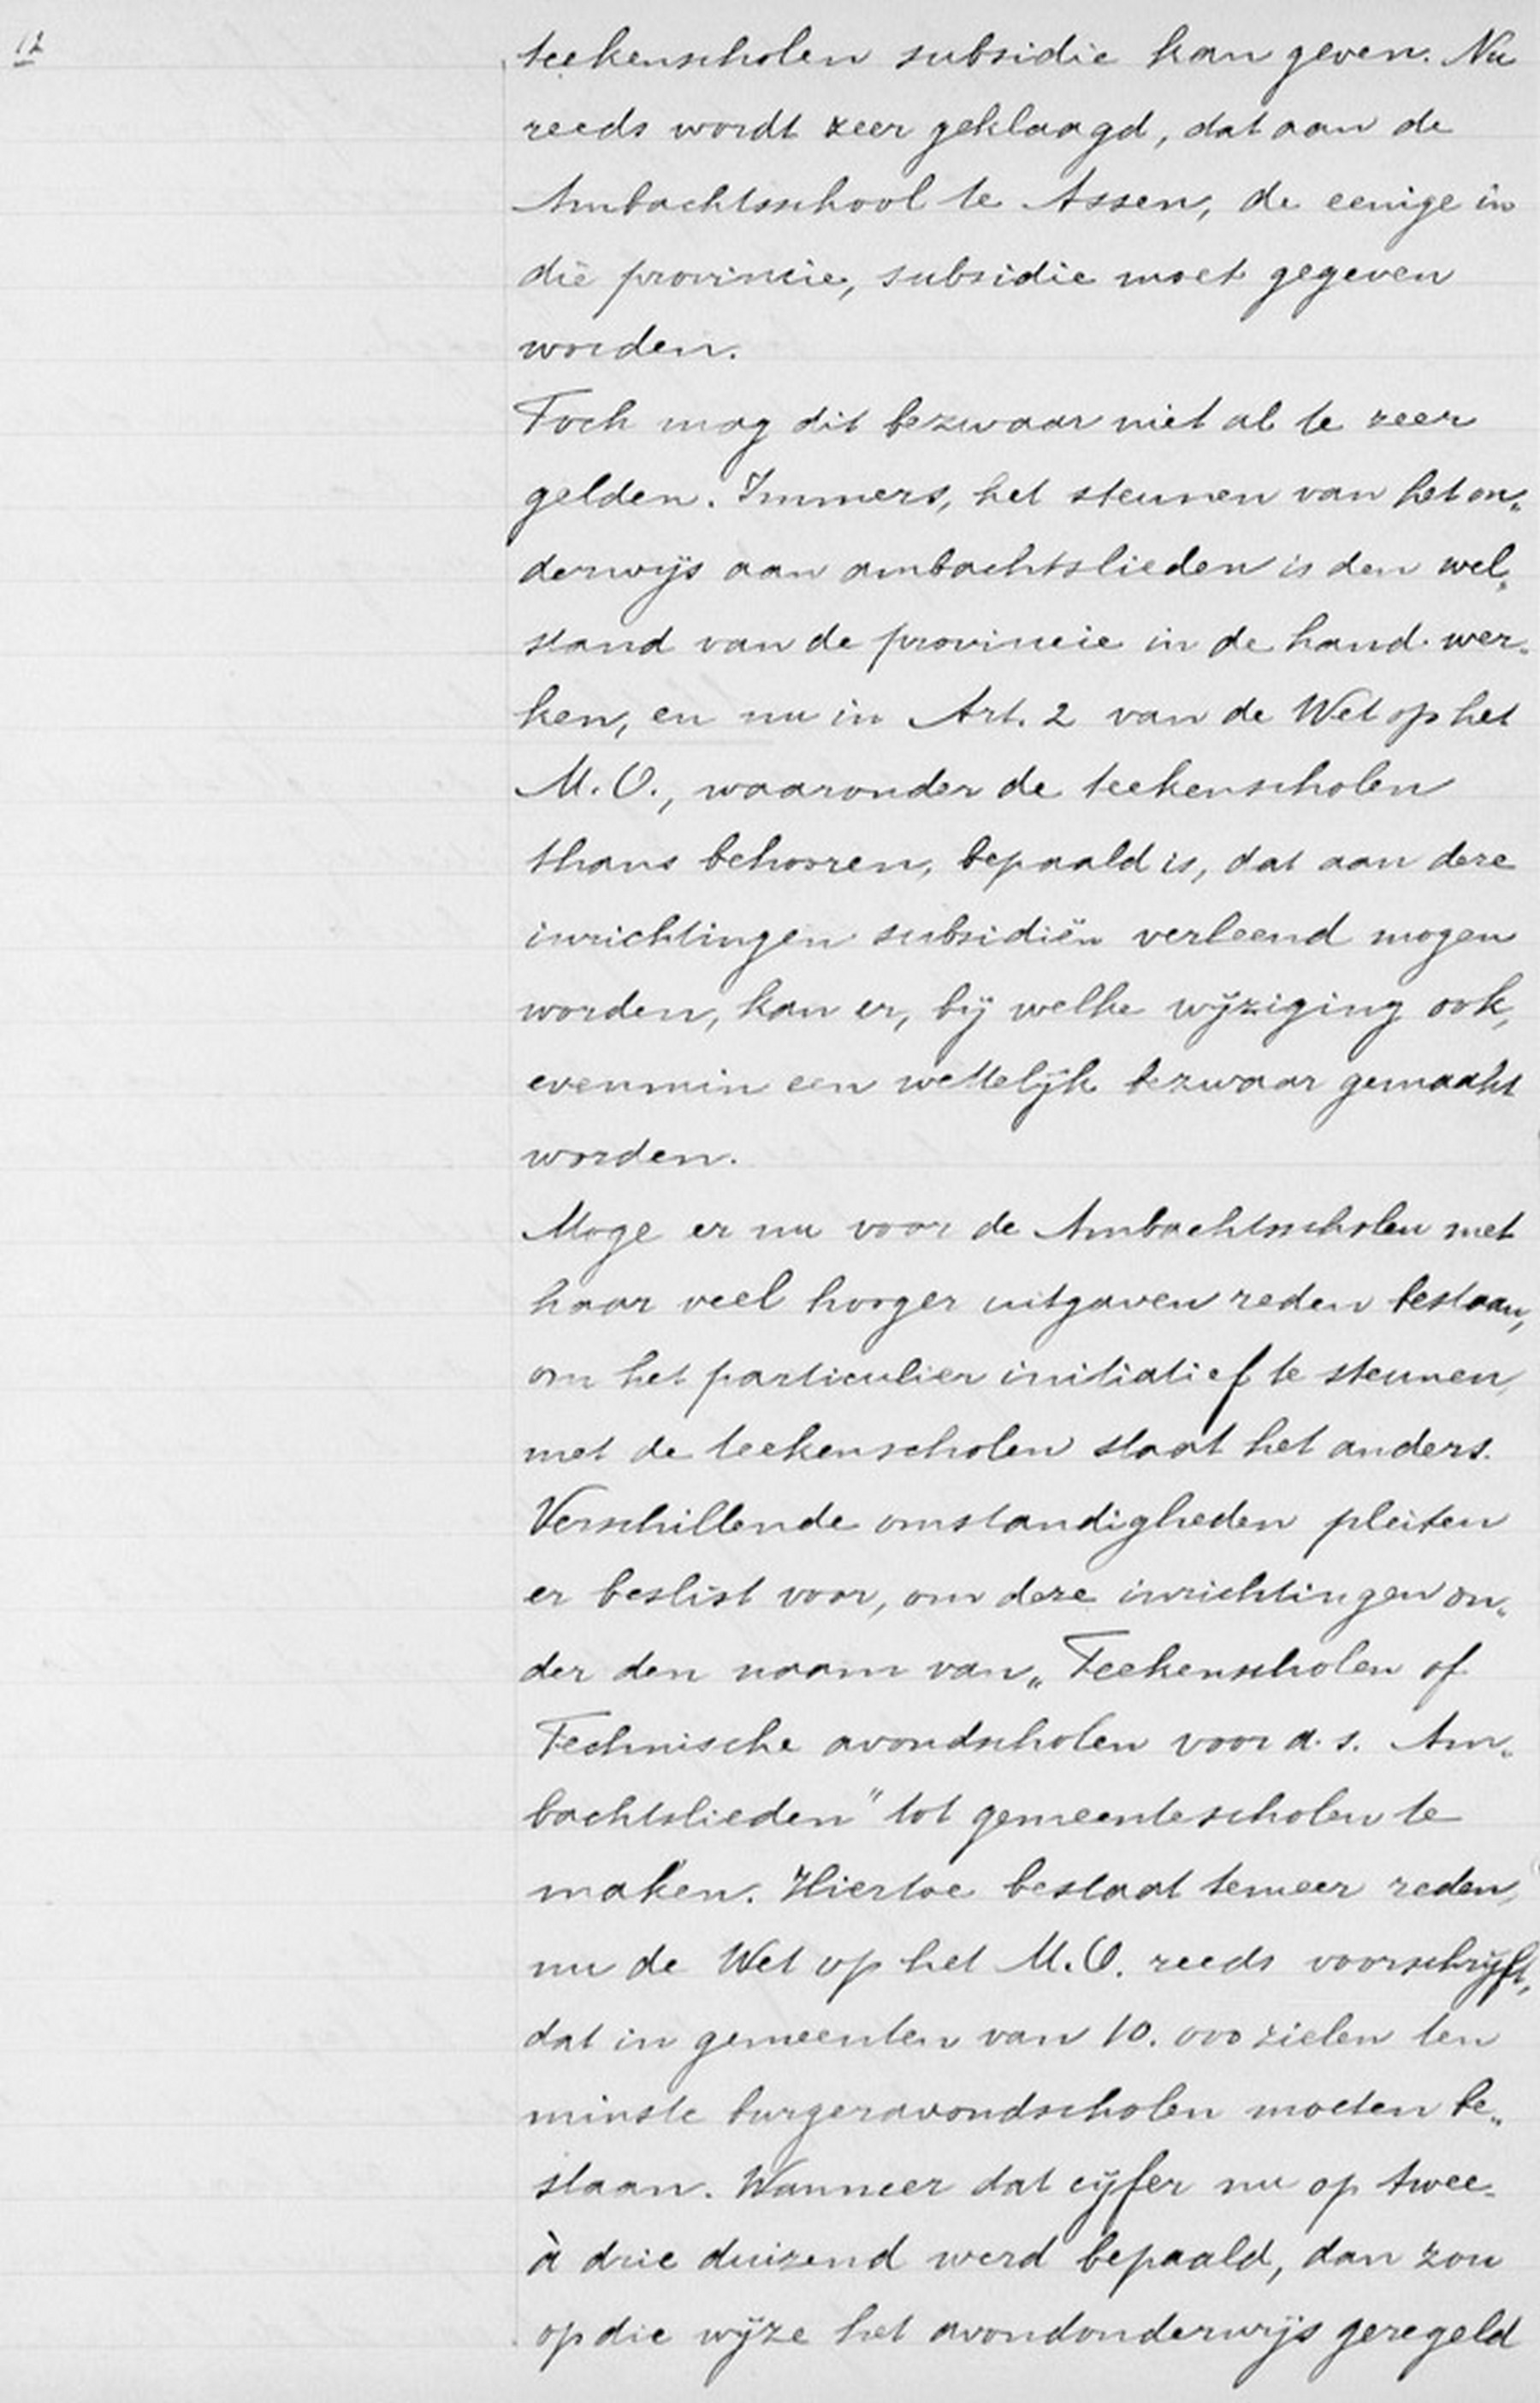 12
teekenscholen subsidie kan geven. Nu
reeds wordt zeer geklaagd, dat aan de
Ambachtsschool te Assen, de eenige in
die provincie, subsidie moet gegeven
worden.
Toch mag dit bezwaar niet al te zeer
gelden. Immers, het steunen van het on„
derwijs aan ambachtslieden is den wel„
stand van de provincie in de hand wer„
ken, en nu in Art. 2 van de Wet op het
M. O., waaronder de teekenscholen
thans behooren, bepaald is, dat aan deze
inrichtingen subsidiën verleend mogen
worden, kan er, bij welke wijziging ook,
evenmin een wettelijk bezwaar gemaakt
worden.
Moge er nu voor de Ambachtsscholen met
haar veel hooger uitgaven reden bestaan,
om het particulier initiatief te steunen,
met de teekenscholen staat het anders.
Verschillende omstandigheden pleiten
er beslist voor, om deze inrichtingen on„
der den naam van „Teekenscholen of
Technische avondscholen voor a. s. Am„
bachtslieden" tot gemeentescholen te
maken. Hiertoe bestaat temeer reden,
nu de Wet op het M. O. reeds voorschrijft,
dat in gemeenten van 10.000 zielen ten
minste burgeravondscholen moeten be„
staan. Wanneer dat cijfer nu op twee-
à drie duizend werd bepaald, dan zou
op die wijze het avondonderwijs geregeld